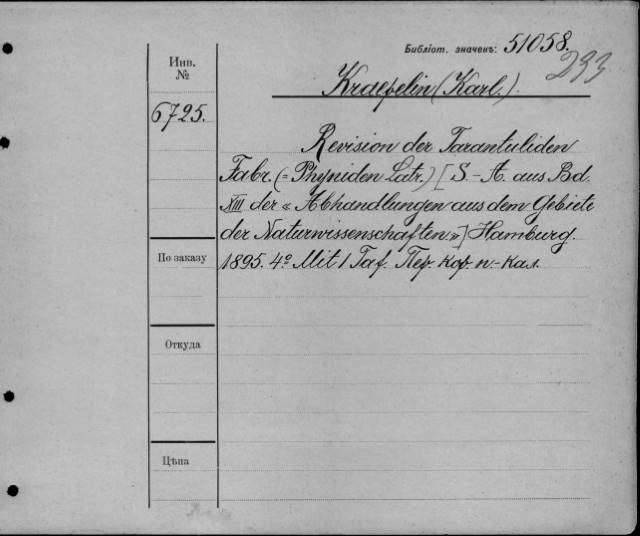 Библіот. значекъ: 51058.
233
Инв.
№
Kraepelin (Karl.).
6725.
Revision der Tarantuliden
Fabr. (= Phryniden Latr.) [S.-A. aus Bd.
XIII der «Abhandlungen aus dem Gebiete
der Naturwissenschaften»] Hamburg.
По заказу
1895. 4º Mit 1 Taf. Пер. кор. н-кал.
Откуда
Цѣна